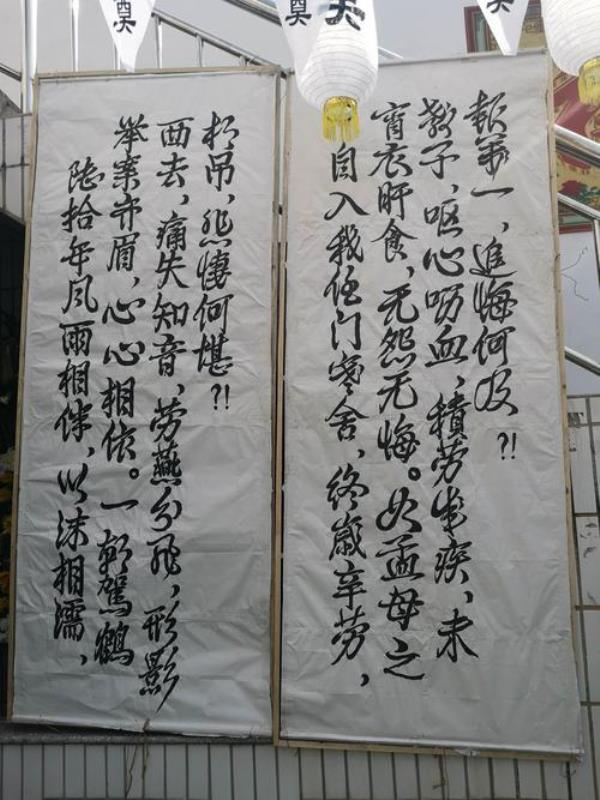 奠
奠
自入我伍门寒舍,终岁辛劳,
宵衣旰食,无怨无悔。如孟母之
教子,呕心呖血,積劳成疾,未
报万一,追悔何及?!
陆拾年风雨相伴,以沫相濡,
举案齐眉,心心相依。一朝驾鹤
西去,痛失知音,劳燕分飞,形影
相吊,悲悽何堪?!